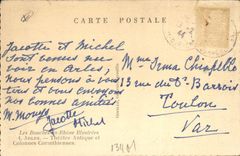 CARTE POSTALE
Jacotte et Michel
sont venus me
voir en Arles;
Nous pensons à vous
tous et vous envoyons
nos bonnes amitiés
M. Mouy
Jacotte
Michel
Mme Irma Chapelle
13 rue du Dr Barrois
Toulon
Var
Les Bouches-du-Rhône Illustrées
ARLES. — Théâtre Antique et
Colonnes Corinthiennes